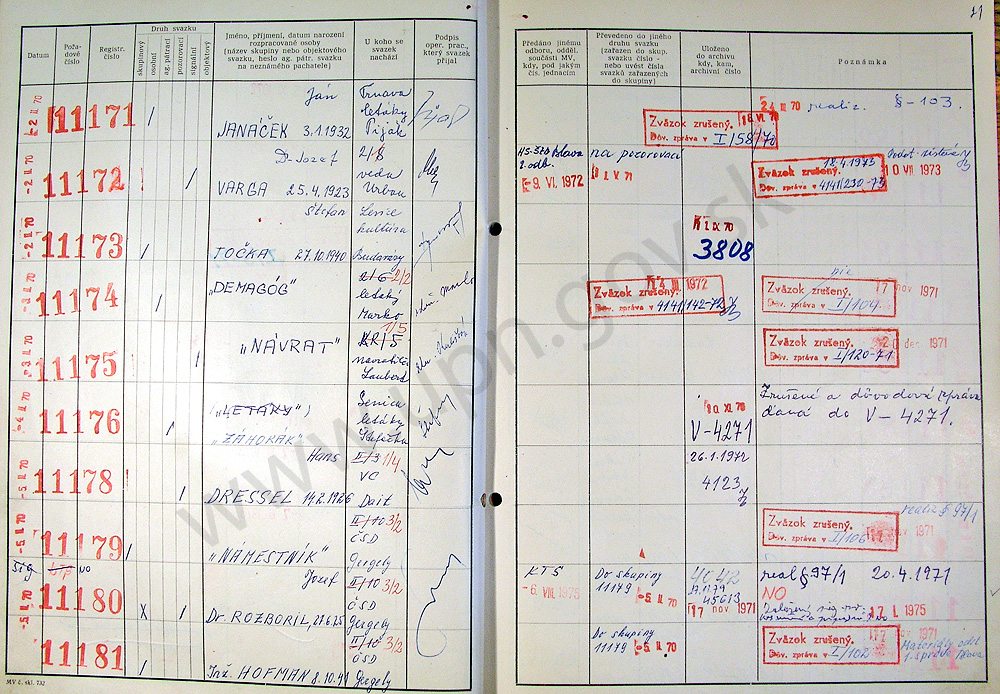 11
Druh svazku
Datum
Pořa-
dové
číslo
Registr.
číslo
skupinový
osobní
ag. pátrací
pozorovací
signální
objektový
Jméno, příjmení, datum narození
rozpracované osoby
(název skupiny nebo objektového
svazku, heslo ag. pátr. svazku
na neznámého pachatele)
U koho se
svazek
nachází
Podpis
oper. prac.,
který svazek
přijal
Předáno jinému
odboru, odděl.
součásti MV,
kdy, pod jakým
čís. jednacím
Převedeno do jiného
druhu svazku
(zařazen do skup.
svazku číslo -
nebo uvést čísla
svazků zařazených
do skupiny)
Uloženo
do archivu
kdy, kam,
archivní číslo
Poznámka
-2 II 70
11171
Ján
JANÁČEK 3.1.1932
Trnava
letáky
Pijak
Zväzok zrušený.
Dôv. zpráva v I/58/70
24 II 70 realiz. §-103.
-2 II 70
11172
Dr Jozef
VARGA 25.4.1923
2/8
veda
Urban
2. odb.
-9. VI. 1972
na pozorovací
V. 71
18.4.1973
Zväzok zrušený.
Dôv. zpráva v 4141/230-73
10 VII 1973
-2 II 70
11173
Štefan
TOČKA 27.10.1940
kultúra
IX 70
3808
-3 II 70
11174
"DEMAGÓG"
2/6 2/2
letáky
Marko
III 1972
Zväzok zrušený.
Dôv. zpráva v 4141/142-72
17 nov 1971
Zväzok zrušený.
Dôv. zpráva v I/104
-3 II 70
11175
"NÁVRAT"
1/5
Laubert
Zväzok zrušený.
Dôv. zpráva v I/120-71
dec. 1971
-4 II 70
11176
("LETÁKY")
"ZÁHORÁK"
Senica
letáky
10 XI 70
V-4271
Zrušené a dôvodová zpráva
dává do V-4271.
-5 II 70
11178
Hans
DRESSEL 14.2.1926
II/3 1/4
VC
26.1.1972
4123
-5 II 70
11179
"NÁMESTNÍK"
II/10 3/2
ČSD
Gergely
realiz § 97/1
Zväzok zrušený.
Dôv. zpráva v I/106
1971
sig
NO
-5 II 70
11180
x
Jozef
Dr. ROZBORIL, 27.6.25
II/10 3/2
ČSD
Gergely
KTS
-6. VIII. 1975
Do skupiny
11179
-5 II 70
4042
45613
17 nov 1971
real § 97/1 20.4.1971
NO
17. I. 1975
11181
Inž. HOFMAN 8.10.41
II/10 3/2
ČSD
Gergely
Do skupiny
11179
-5 II 70
Zväzok zrušený.
Dôv. zpráva v I/102
1971
MV č. skl. 732
www.upn.gov.sk